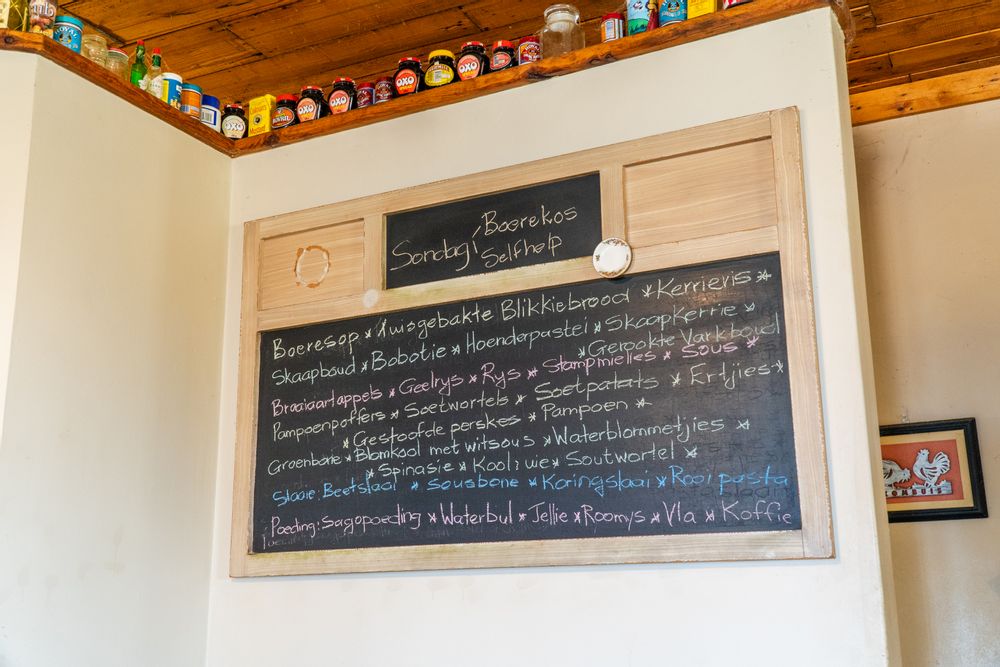 Sondag Boerekos
Selfhelp
Boeresop * Tuisgebakte Blikkiebrood * Kerrievis *
Skaapboud * Bobotie * Hoenderpastei * Skaapkerrie *
* Gerookte Varkboud
Braaiaartappels * Geelrys * Rys * Stampmielies * Sous *
Pampoenpoffers * Soetwortels * Soetpatats * Ertjies *
* Gestoofde perskes * Pampoen *
Groenbone * Blomkool met witsous * Waterblommetjies *
* Spinasie * Kool * Soutwortel *
Slaaie: Beetslaai * Sousbone * Koringslaai * Rooi pasta
Poeding: Sagopoeding * Waterbul * Jellie * Roomys * Vla * Koffie
OXO
OXO
OXO
OXO
OXO
OXO